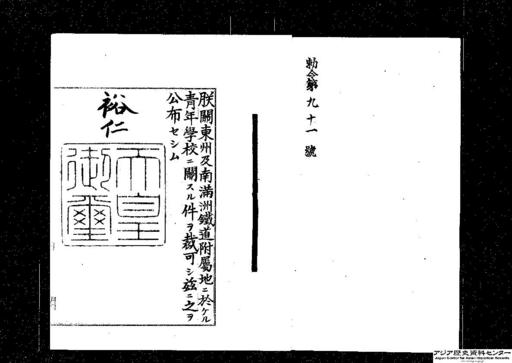 勅令第九十一號
朕關東州及南滿洲鐵道附屬地ニ於ケル
青年學校ニ關スル件ヲ裁可シ茲ニ之ヲ
公布セシム
裕仁
天皇
御璽
アジア歴史資料センター
Japan Center for Asian Historical Records